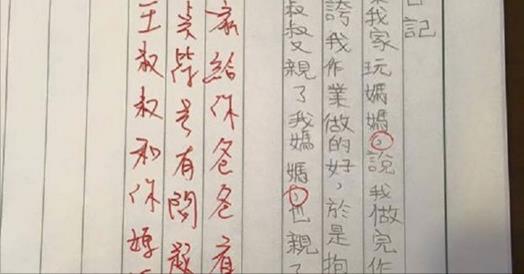 日記
我家玩媽媽。說我做完作
誇我作業做的好，於是抱
叔叔又親了我媽媽，也親了
給你爸爸看
標點有問題
王叔叔和你媽